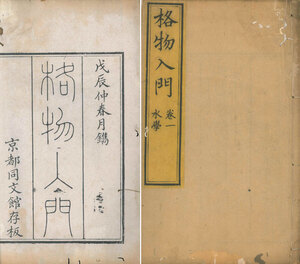 格物入門
卷一
水學
戊辰仲春月鐫
格物入門
京都同文館存板